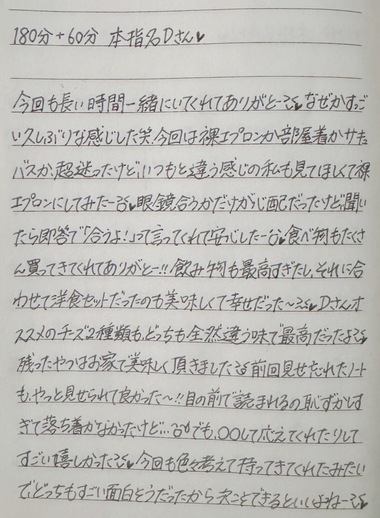 180分+60分 本指名Dさん♥
今回も長い時間一緒にいてくれてありがとー なぜかすっご
い久しぶりな感じした笑 今回は裸エプロンか部屋着かサキュ
バスか、超迷ったけど、いつもと違う感じの私も見てほしくて裸
エプロンにしてみたー♥眼鏡合うかだけが心配だったけど、聞い
たら即答で「合うよ！」って言ってくれて安心したー 食べ物もたくさ
ん買ってきてくれてありがとー!! 飲み物も最高すぎたし、それに合
わせて洋食セットだったのも美味しくて幸せだった〜♥Dさんオ
ススメのチーズ2種類も、どっちも全然違う味で最高だったよ
残ったやつはお家で美味しく頂きました 前回見せ忘れたノート
も、やっと見せられて良かった〜!! 目の前で読まれるの恥ずかしす
ぎて落ち着かなかったけど… でも、〇〇して応えてくれたりして
すごい嬉しかった 今回も色々考えて持ってきてくれたみたい
で、どっちもすごい面白そうだったから次こそできるといいよねー